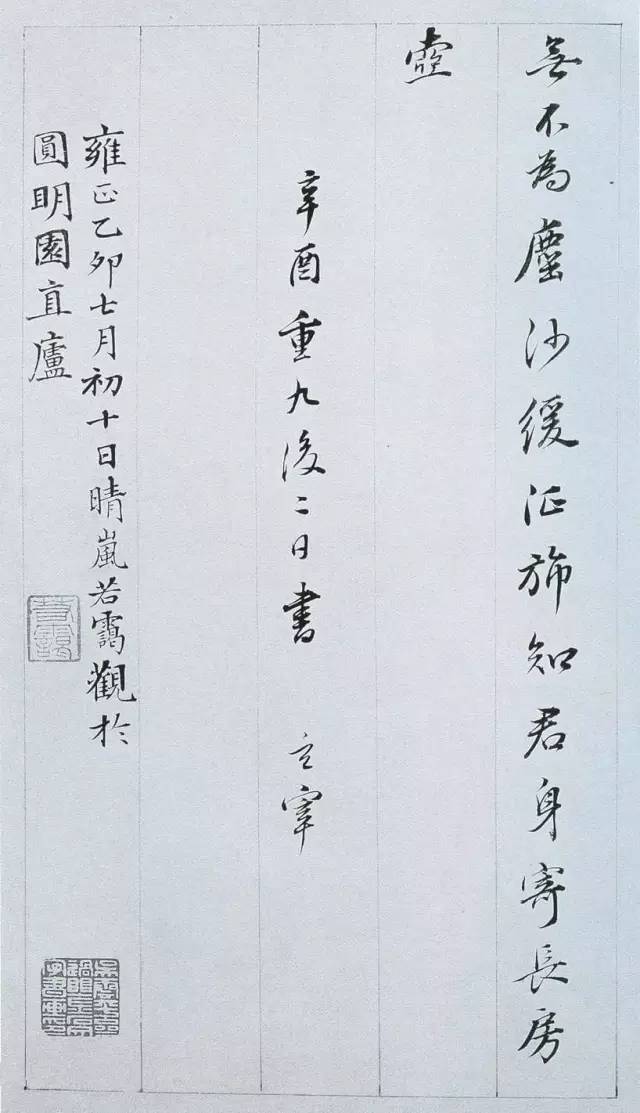 無不為塵沙緩征斾知君身寄長房
壺
辛酉重九後二日書 玄宰
雍正乙卯七月初十日晴嵐若靄觀於
圓明園直廬
若靄